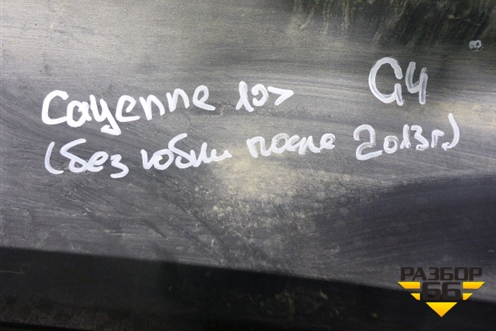 Cayenne 10> G4
(без юбки после 2013г.)
РАЗБОР
66